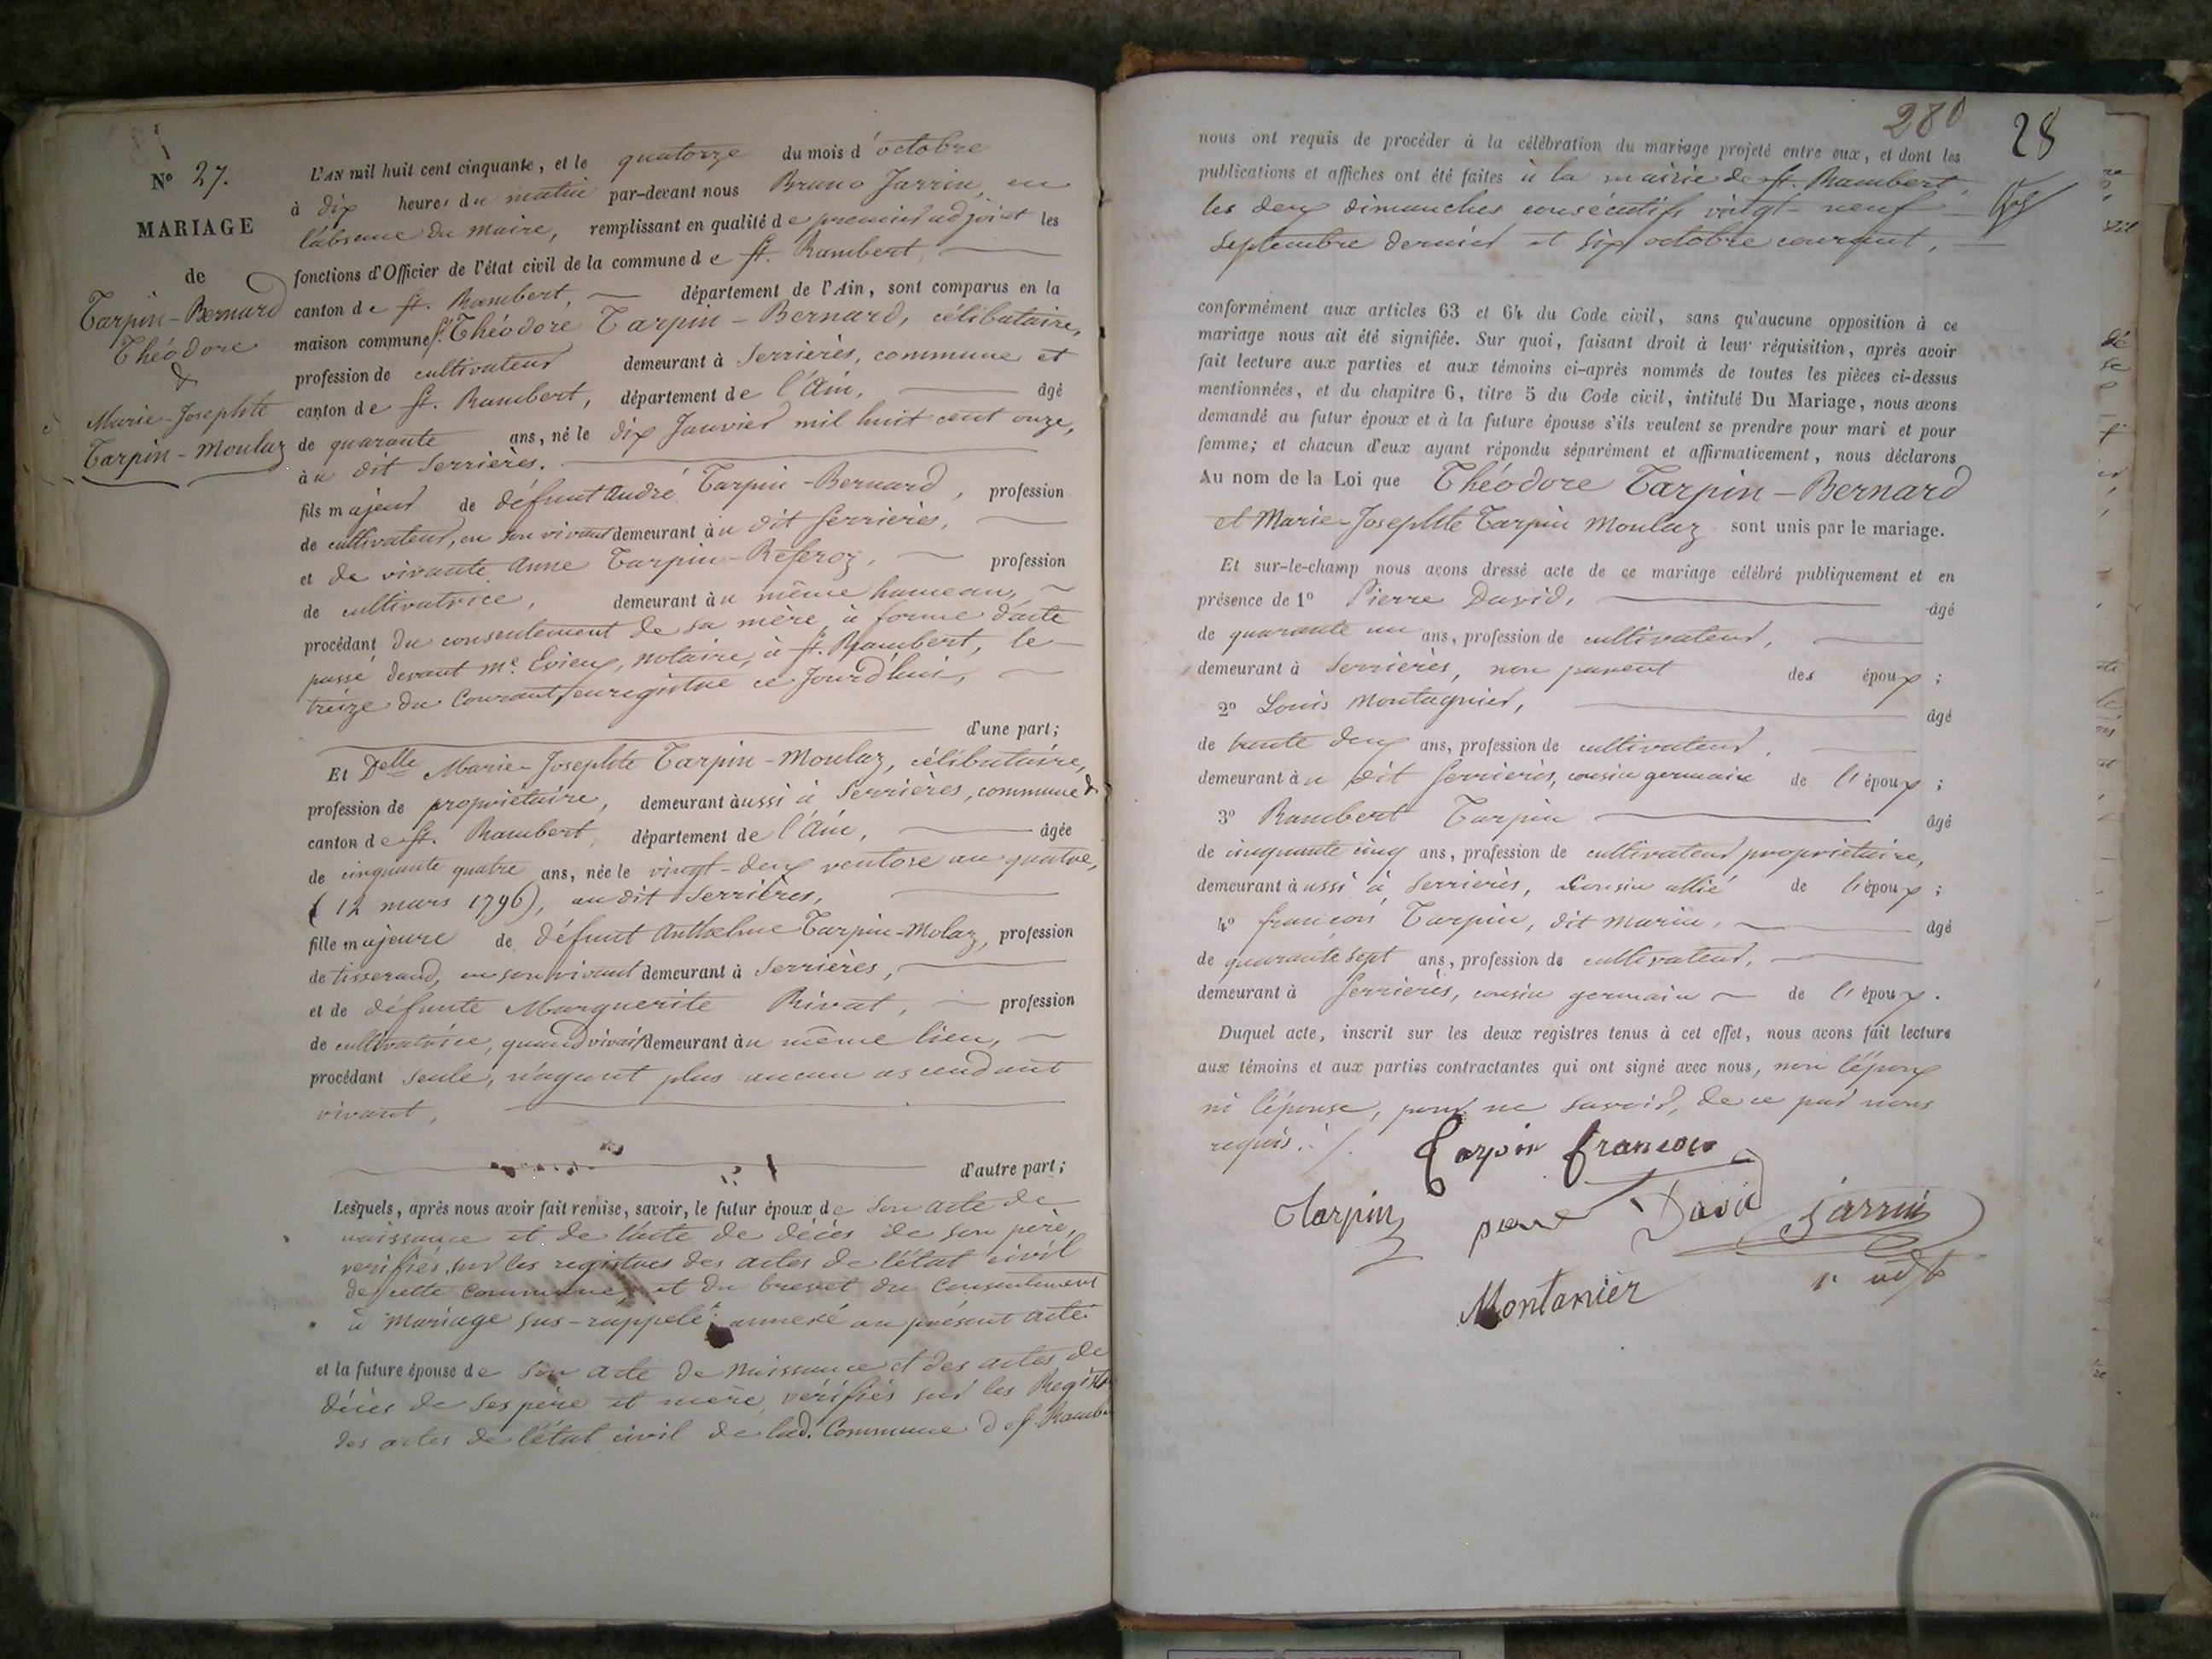 N° 27.
MARIAGE
de
Tarpin-Bernard
Théodore
&
Marie-Josephte
Tarpin-Moulaz
L'AN mil huit cent cinquante, et le quatorze du mois d'octobre
à dix heures du matin par-devant nous Bruno Jarrin, en
l'absence du maire, remplissant en qualité de premier adjoint les
fonctions d'Officier de l'état civil de la commune de St. Rambert,
canton de St. Rambert, département de l'Ain, sont comparus en la
maison commune Sr. Théodore Tarpin-Bernard, célibataire,
profession de cultivateur demeurant à Serrières, commune et
canton de St. Rambert, département de l'Ain, âgé
de quarante ans, né le dix Janvier mil huit cent onze,
àu dit Serrières.
fils majeur de défunt André Tarpin-Bernard, profession
de cultivateur, en son vivant demeurant àu dit Serrières,
et de vivante Anne Tarpin-Referoz, profession
de cultivatrice, demeurant àu même hameau,
procédant du consentement de sa mère, à forme d'acte
passé devant Me. Evieux, notaire, à St. Rambert, le
treize du courant, enregistré ce jourd'hui,
d'une part;
Et Delle Marie-Josephte Tarpin-Moulaz, célibataire,
profession de propriétaire, demeurant àussi à Serrières, commune &
canton de St. Rambert, département de l'Ain, âgée
de cinquante quatre ans, née le vingt-deux ventose an quatre,
(12 mars 1796), au dit Serrières,
fille majeure de défunt Anthelme Tarpin-Molaz, profession
de tisserand, en son vivant demeurant à Serrières,
et de défunte Marguerite Rivat, profession
de cultivatrice, quand vivait demeurant àu même lieu,
procédant seule, n'ayant plus aucun ascendant
vivant,
d'autre part;
Lesquels, après nous avoir fait remise, savoir, le futur époux de son acte de
naissance et de l'acte de décès de son père,
verifiés sur les registres des actes de l'état civil
de cette commune, et du brevet du consentement
à mariage sus-rappelé, annexé au présent acte.
et la future épouse de son acte de naissance et des actes de
décès de ses père et mère, vérifiés sur les Regist
des actes de l'état civil de lad. Commune de St. Ramb
280
28
nous ont requis de procéder à la célébration du mariage projeté entre eux, et dont les
publications et affiches ont été faites à la mairie de St. Rambert,
les deux dimanches consécutifs vingt-neuf
septembre dernier et six octobre courant,
conformément aux articles 63 et 64 du Code civil, sans qu'aucune opposition à ce
mariage nous ait été signifiée. Sur quoi, faisant droit à leur réquisition, après avoir
fait lecture aux parties et aux témoins ci-après nommés de toutes les pièces ci-dessus
mentionnées, et du chapitre 6, titre 5 du Code civil, intitulé Du Mariage, nous avons
demandé au futur époux et à la future épouse s'ils veulent se prendre pour mari et pour
femme; et chacun d'eux ayant répondu séparément et affirmativement, nous déclarons
Au nom de la Loi que Théodore Tarpin-Bernard
et Marie-Josephte Tarpin Moulaz sont unis par le mariage.
Et sur-le-champ nous avons dressé acte de ce mariage célébré publiquement et en
présence de 1° Pierre David, âgé
de quarante un ans, profession de cultivateur,
demeurant à Serrières, non parent des époux;
2° Louis Montagnier, âgé
de trente deux ans, profession de cultivateur,
demeurant àu dit Serrières, cousin germain de l'époux;
3° Rambert Tarpin âgé
de cinquante cinq ans, profession de cultivateur propriétaire,
demeurant àussi à Serrières, cousin allié de l'époux;
4° françois Tarpin, dit Marin, âgé
de quarante sept ans, profession de cultivateur,
demeurant à Serrières, cousin germain de l'époux.
Duquel acte, inscrit sur les deux registres tenus à cet effet, nous avons fait lecture
aux témoins et aux parties contractantes qui ont signé avec nous, non l'époux
ni l'épouse, pour ne savoir, de ce par nous
requis.
Tarpin francois
Tarpin
David
Jarrin
1r adjt
Montanier